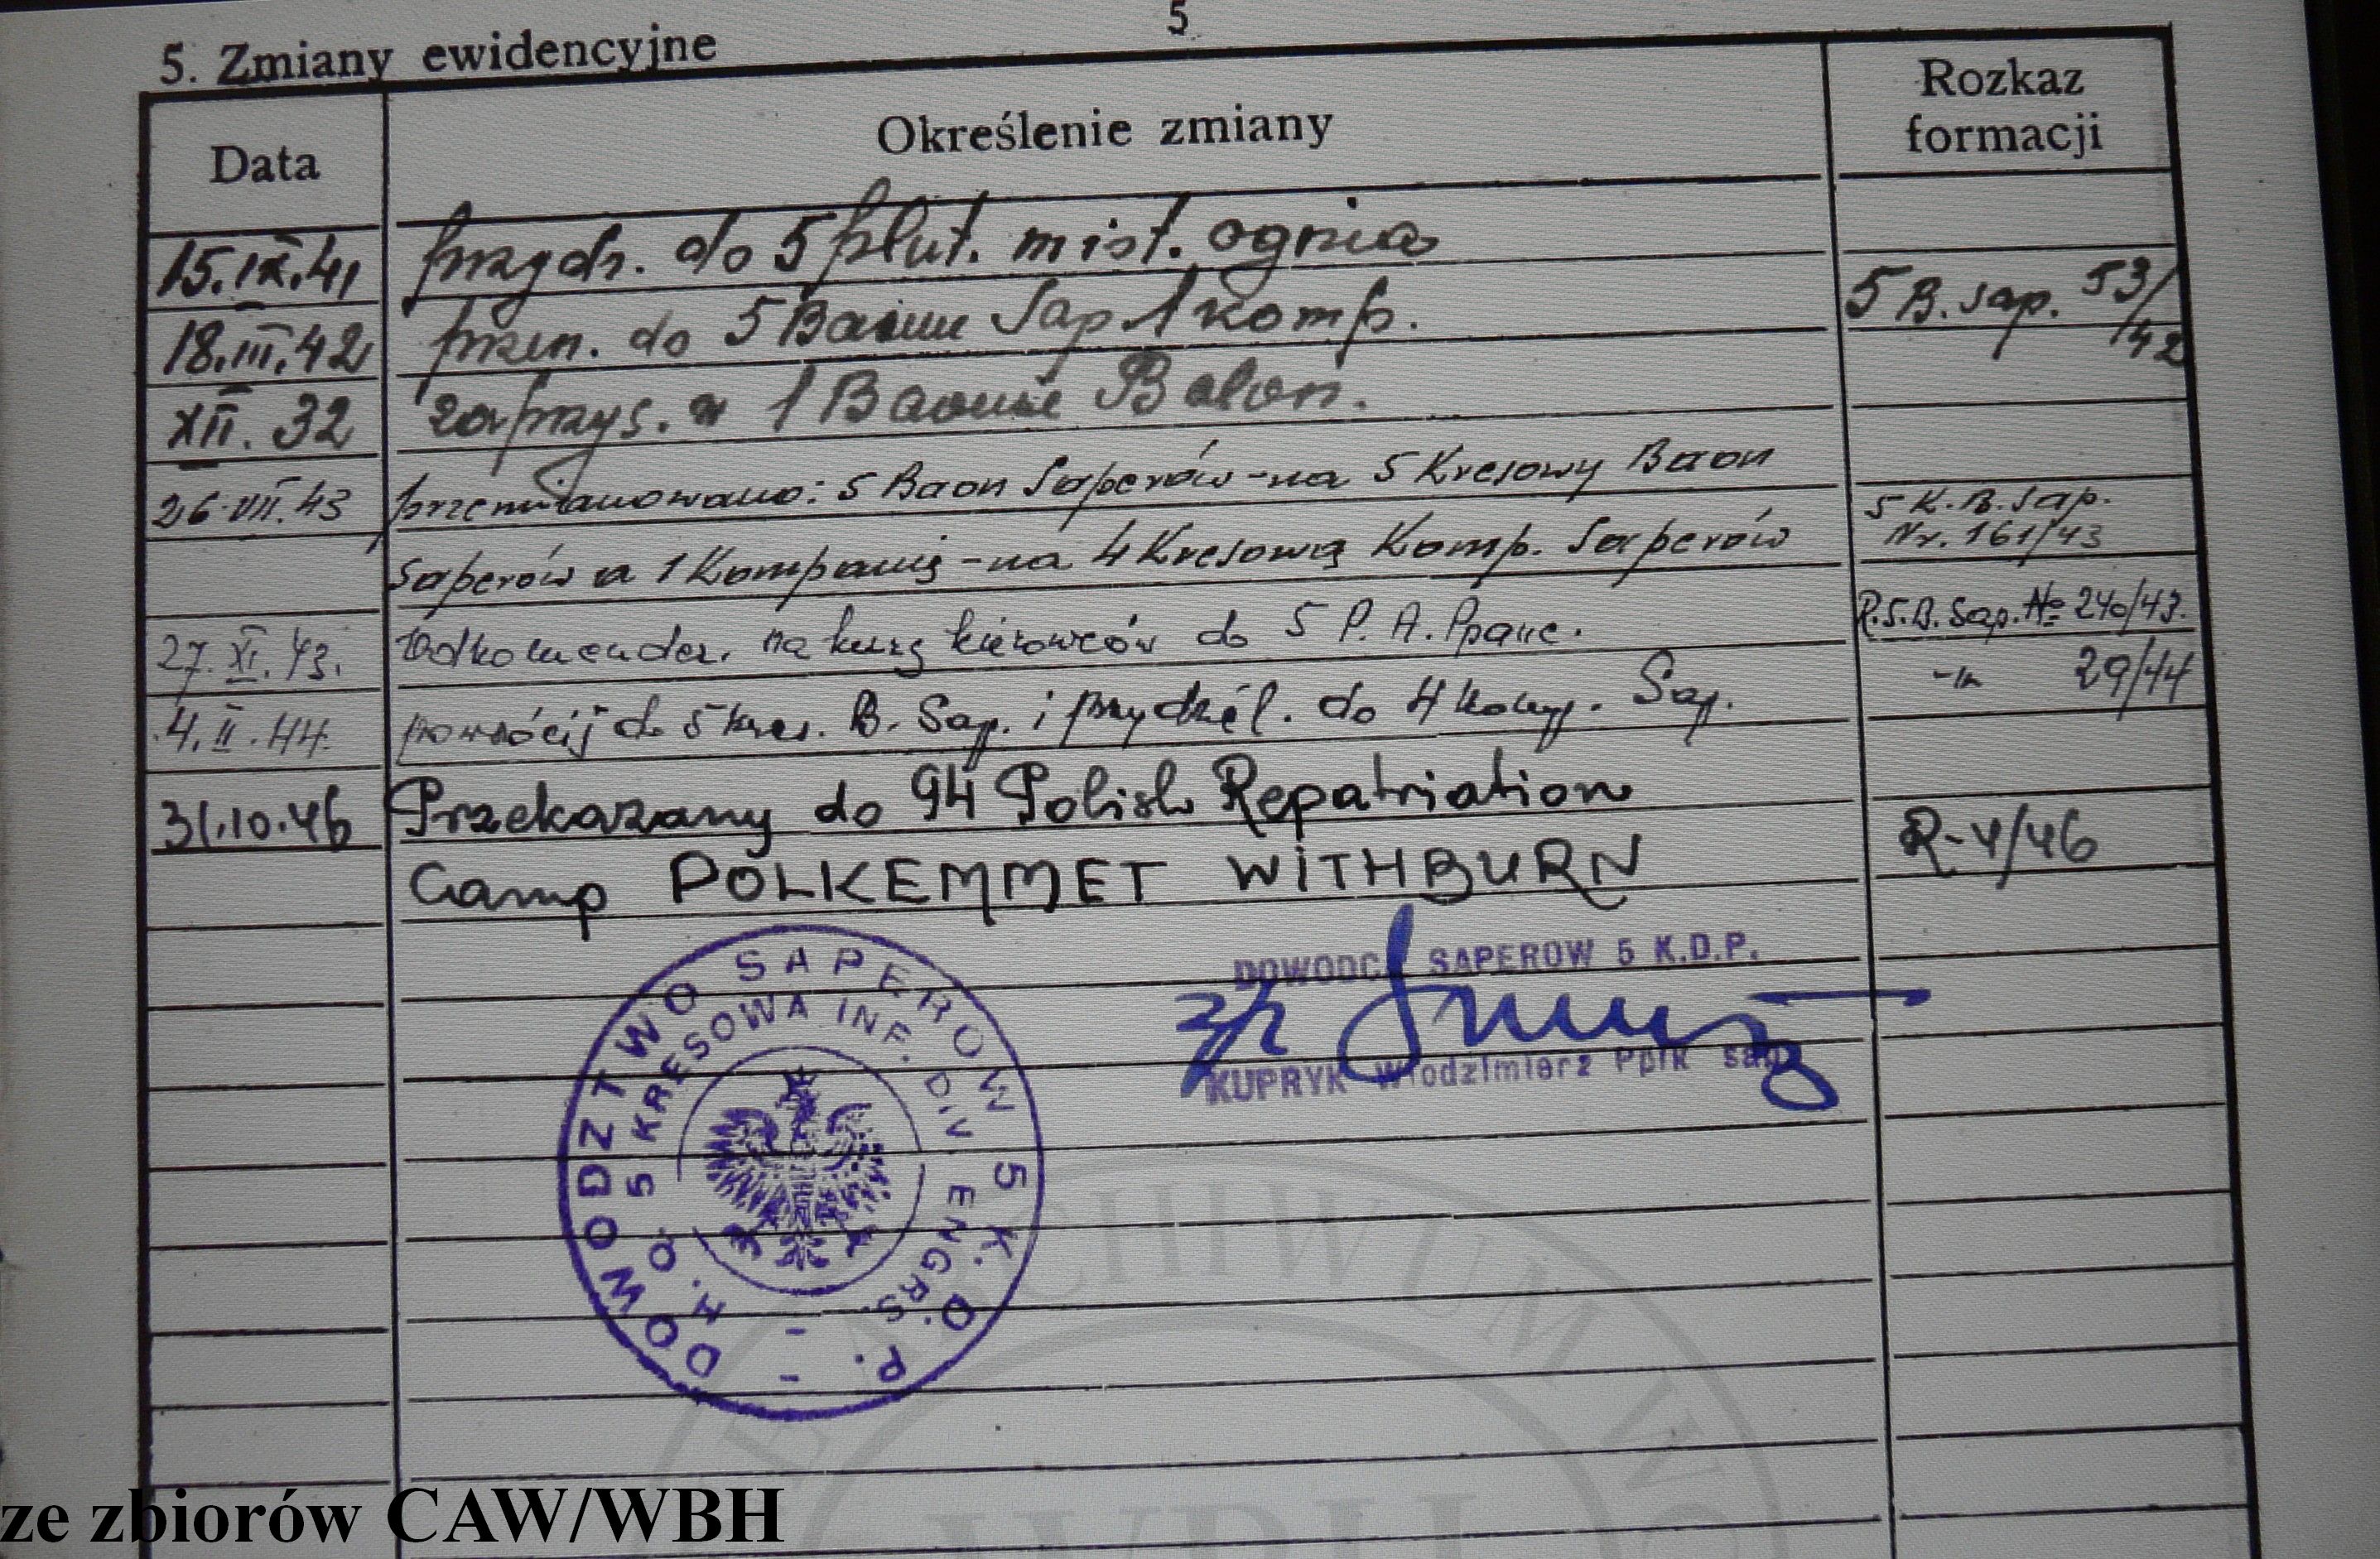 5
5. Zmiany ewidencyjne
Data
Określenie zmiany
Rozkaz
formacji
15.IX.41 przydz. do 5 plut. mist. ognia
18.III.42 przen. do 5 Baonu Sap 1 komp. 5 B. sap. 53/
/42
XII. 32 zaprzys. w 1 Baonie Balon.
26.VII.43 przemianowano: 5 Baon Saperów - na 5 Kresowy Baon
Saperów a 1 Kompanię - na 4 Kresową Komp. Saperów 5 K.B. Sap.
Nr. 161/43
27.XI.43. Odkomender. na kurs kierowców do 5 P. A. Ppanc. R.5.B. Sap. No 240/43.
4.II.44. powrócił do 5 kres. B. Sap. i przydziel. do 4 komp. Sap. 29/44
31.10.46 Przekazany do 94 Polish Repatriation
Camp POLKEMMET WITHBURN R-4/46
DOWODCA SAPEROW 5 K.D.P.
KUPRYK Włodzimierz Ppłk sap
DOWODZTWO SAPEROW 5 K. D. P.
H.Q. 5 KRESOWA INF. DIV. ENGRS.
ARCHIWUM
ze zbiorów CAW/WBH